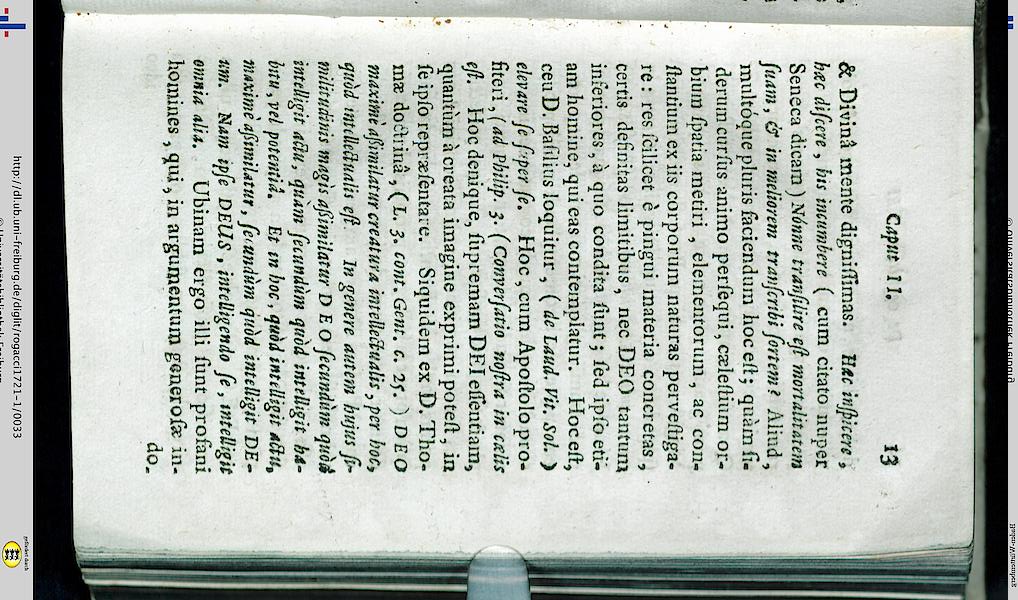 Caput II. 13
& Divinâ mente digniſſimas. Hæc inſpicere,
hæc diſcere, his incumbere ( cum citato nuper
Seneca dicam ) Nónne tranſilire eſt mortalitatem
ſuam, & in meliorem tranſcribi ſortem? Aliud,
multóque pluris faciendum hoc eſt; quàm ſi-
derum curſus animo perſequi, cæleſtium or-
bium ſpatia metiri, elementorum, ac con-
ſtantium ex iis corporum naturas perveſtiga-
re: res ſcilicet è pingui materia concretas,
certis definitas limitibus, nec DEO tantum
inferiores, à quo condita ſunt; ſed ipſo eti-
am homine, qui eas contemplatur. Hoc eſt,
ceu D. Baſilius loquitur, ( de Laud. Vit. Sol. )
elevare ſe ſuper ſe. Hoc, cum Apoſtolo pro-
fiteri, ( ad Philip. 3. (Converſatio noſtra in cælis
eſt. Hoc denique, ſupremam DEI eſſentiam,
quantùm à creata imagine exprimi poteſt, in
ſe ipſo repræſentare. Siquidem ex D. Tho-
mæ doctrinâ, ( L. 3. cont. Gent. c. 25. ) DEO
maximè aſſimilatur creatura intellectualis, per hoc,
quòd intellectualis eſt. In genere autem hujus ſi-
militudinis magìs aſſimilatur DEO ſecundùm quòd
intelligit actu, quam ſecundùm quòd intelligit ha-
bitu, vel potentiâ. Et in hoc, quòd intelligit actu,
maximè aſſimilatur, ſecundùm quòd intelligit DE-
um. Nam ipſe DEUS, intelligendo ſe, intelligit
omnia alia. Ubinam ergo illi ſunt profani
homines, qui, in argumentum generoſæ in-
do-
http://dl.ub.uni-freiburg.de/diglit/rogacci1721-1/0033
© Universitätsbibliothek Freiburg
gefördert durch